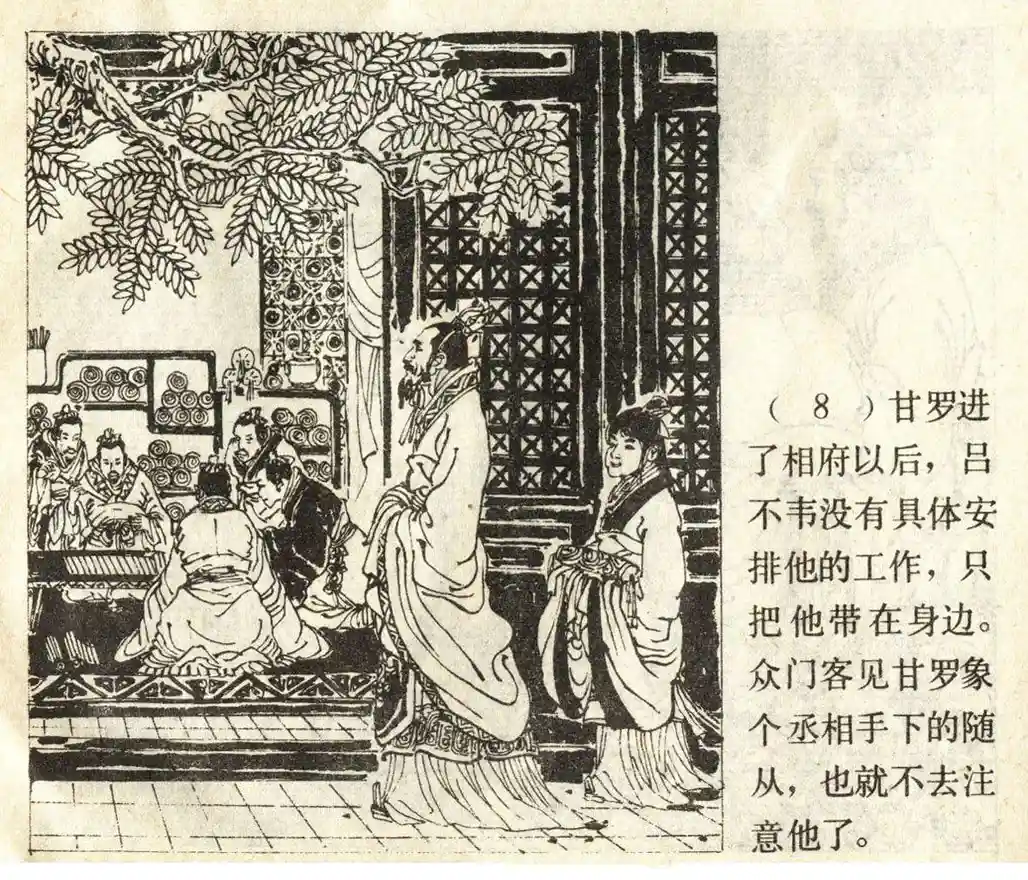 （8）甘罗进
了相府以后，吕
不韦没有具体安
排他的工作，只
把他带在身边。
众门客见甘罗象
个丞相手下的随
从，也就不去注
意他了。